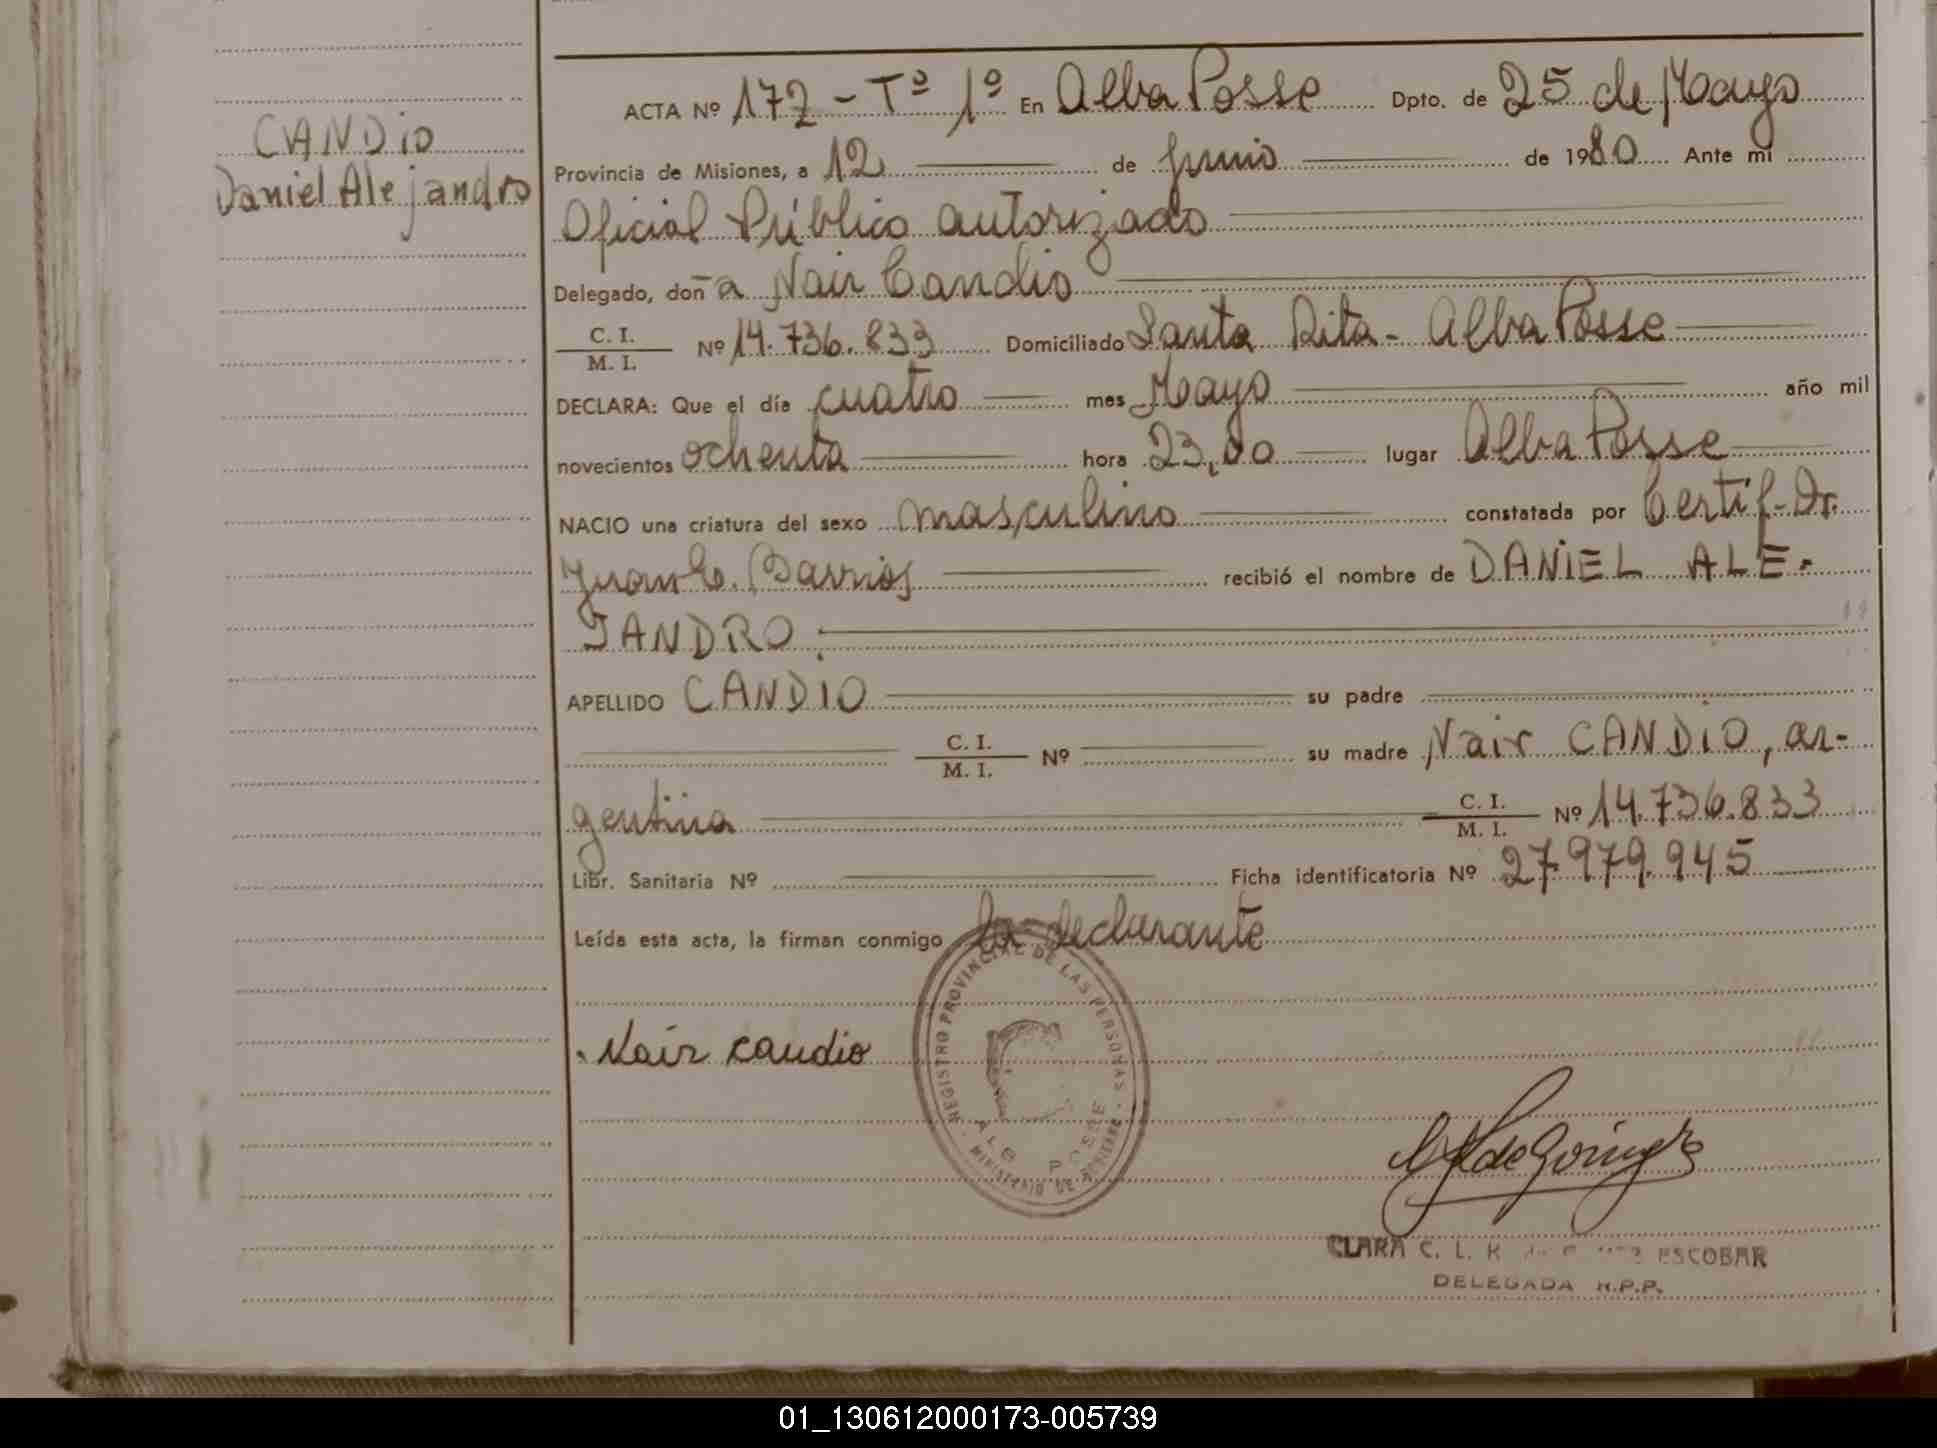 CANDIO
Daniel Alejandro
ACTA Nº 172 - Tº 1º En Alba Posse Dpto. de 25 de Mayo
Provincia de Misiones, a 12 de Junio de 1980 Ante mí
Oficial Público autorizado
Delegado, doña Nair Candio
C. I.
M. I. Nº 14.736.833 Domiciliado Santa Rita - Alba Posse
DECLARA: Que el día cuatro mes Mayo año mil
novecientos ochenta hora 23,00 lugar Alba Posse
NACIO una criatura del sexo masculino constatada por Certif. Dr.
Juan C. Barrios recibió el nombre de DANIEL ALE-
JANDRO.
APELLIDO CANDIO su padre
C. I.
M. I. Nº su madre Nair CANDIO, ar-
gentina C. I.
M. I. Nº 14.736.833
Libr. Sanitaria Nº Ficha identificatoria Nº 27.979.945
Leída esta acta, la firman conmigo la declarante
REGISTRO PROVINCIAL DE LAS PERSONAS
MINISTERIO DE GOBIERNO
POSSE
Nair Candio
CLARA C. L. ESCOBAR
DELEGADA R.P.P.
01_130612000173-005739